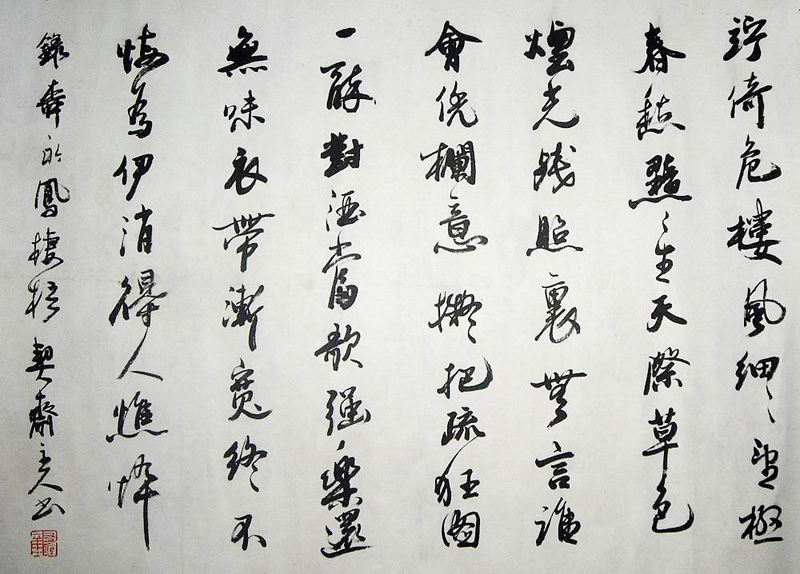 竚倚危樓風細〻望極
春愁黯〻生天際草色
煙光殘照裏無言誰
會凭欄意擬把疏狂圖
一醉對酒當歌強樂還
無味衣帶漸寬終不
悔為伊消得人憔悴
錄柳永鳳棲梧 契齋主人書